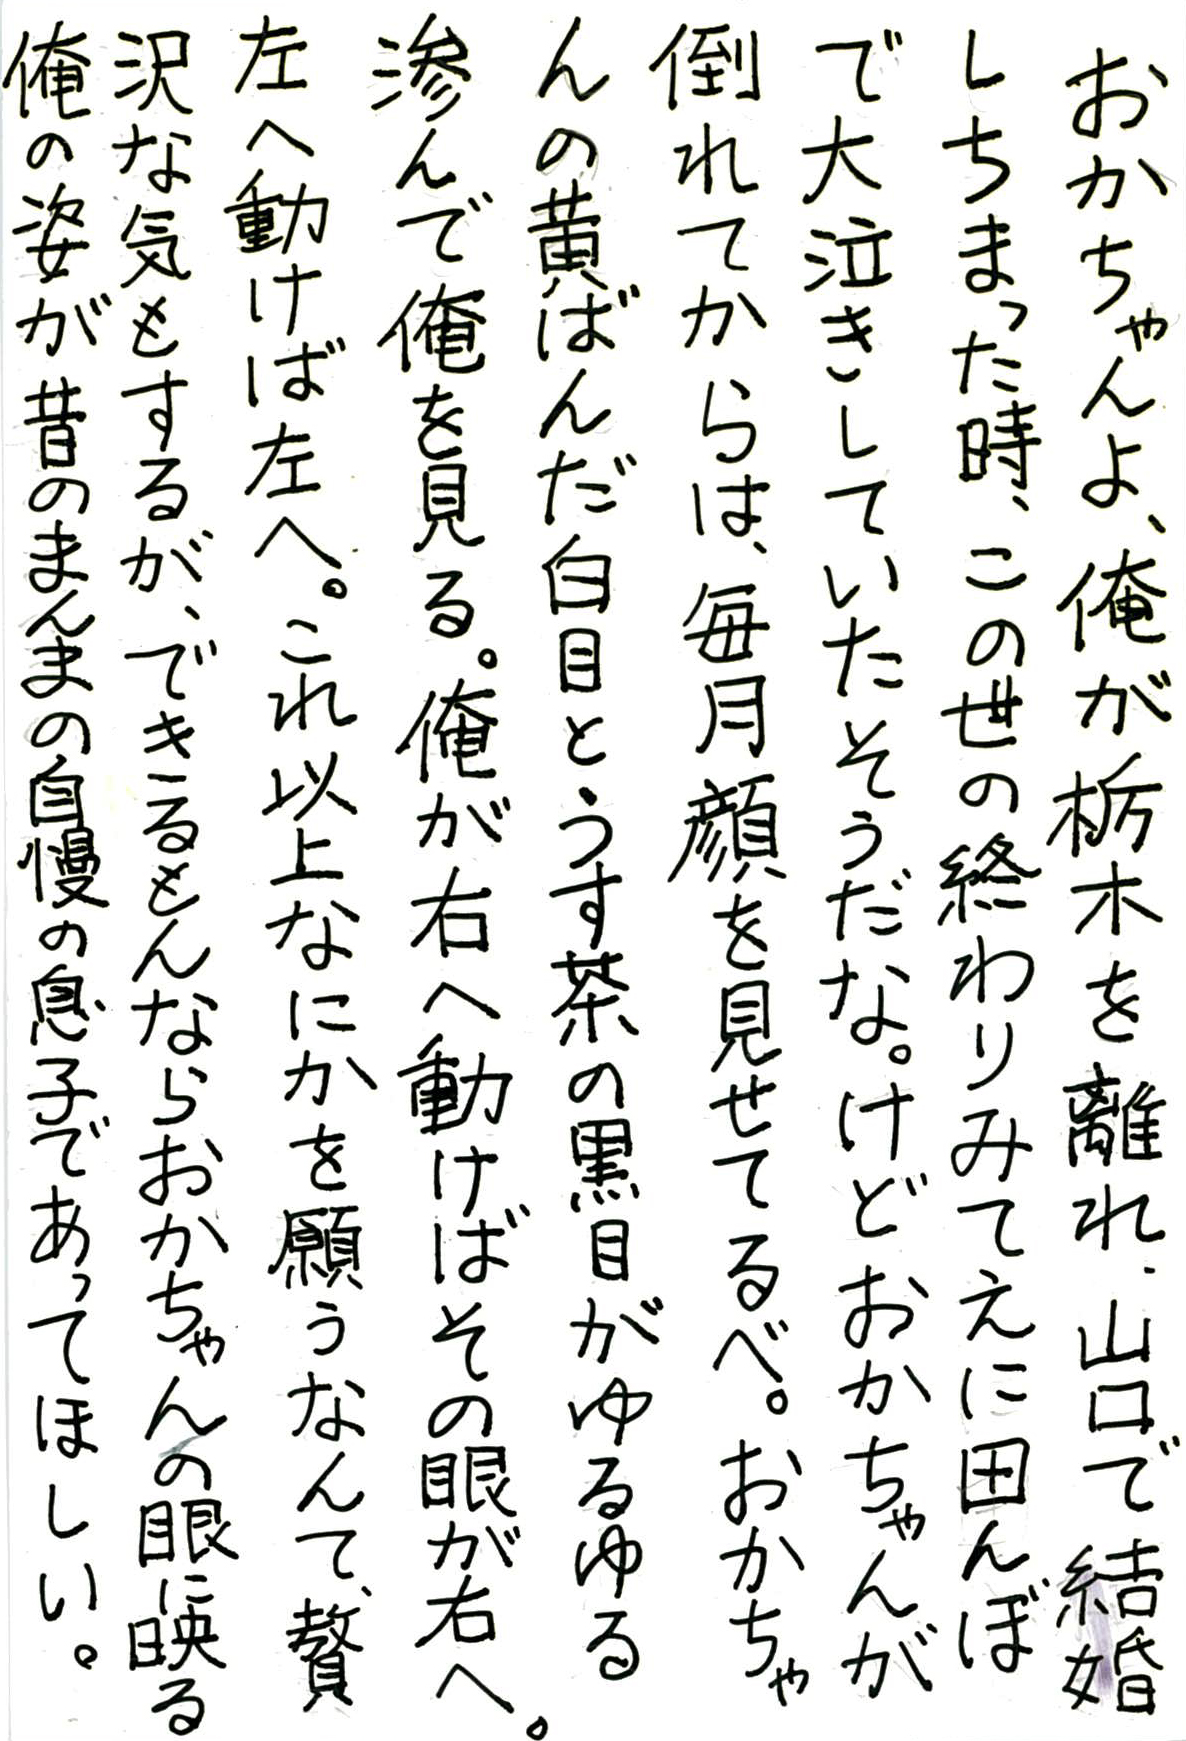 おかちゃんよ、俺が栃木を離れ、山口で結婚
しちまった時、この世の終わりみてえに田んぼ
で大泣きしていたそうだな。けどおかちゃんが
倒れてからは、毎月顔を見せてるべ。おかちゃ
んの黄ばんだ白目とうす茶の黒目がゆるゆる
滲んで俺を見る。俺が右へ動けばその眼が右へ。
左へ動けば左へ。これ以上なにかを願うなんて、贅
沢な気もするが、できるもんならおかちゃんの眼に映る
俺の姿が昔のまんまの自慢の息子であってほしい。